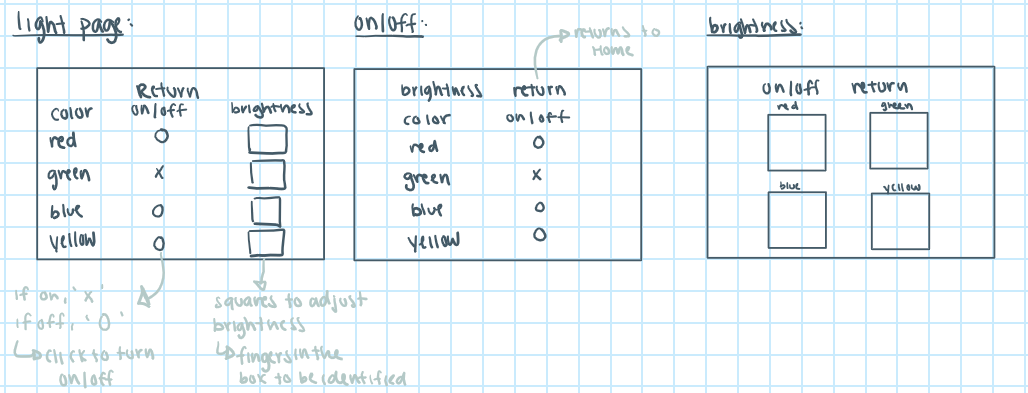 light page:
Return
color on/off brightness
red O
green X
blue O
yellow O
if on, 'X'
if off, 'O'
click to turn
on/off
squares to adjust
brightness
fingers in the
box to be identified
on/off:
returns to
Home
brightness return
color on/off
red O
green X
blue O
yellow O
brightness:
on/off return
red green
blue yellow